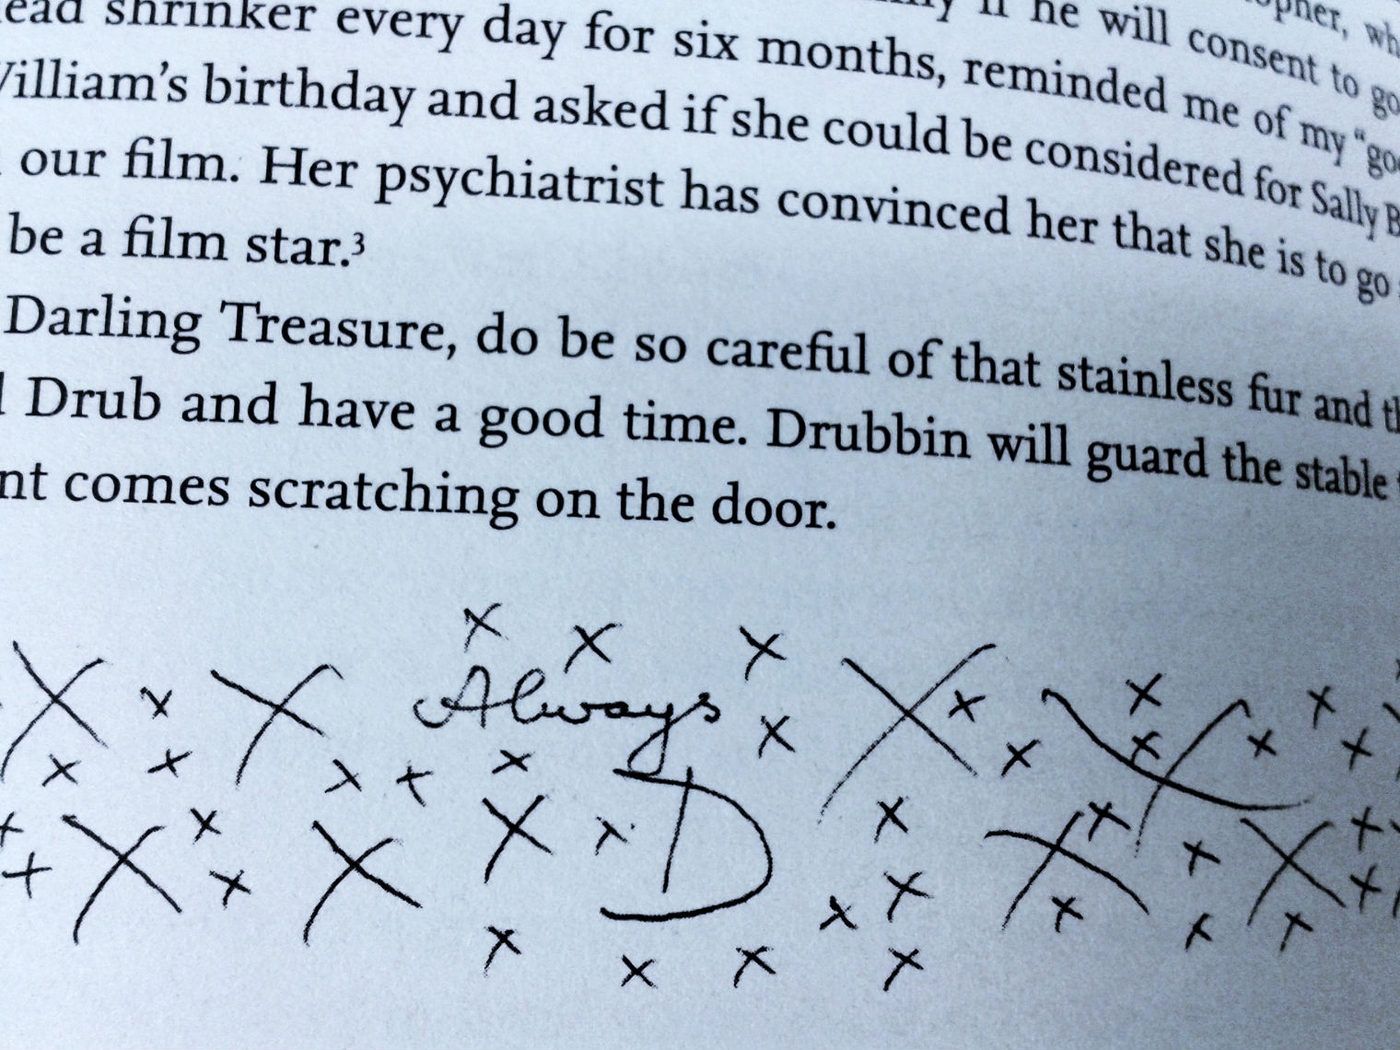 shrinker every day for six months, reminded me of my “
if he will consent to go
William’s birthday and asked if she could be considered for Sally B
our film. Her psychiatrist has convinced her that she is to go
be a film star.³
Darling Treasure, do be so careful of that stainless fur and th
Drub and have a good time. Drubbin will guard the stable
nt comes scratching on the door.
x x x
X x X Always x X x x x x
x x x + x x x x x
+ X x X X x D x X x x X +
+ x x x x x
x x x x x x